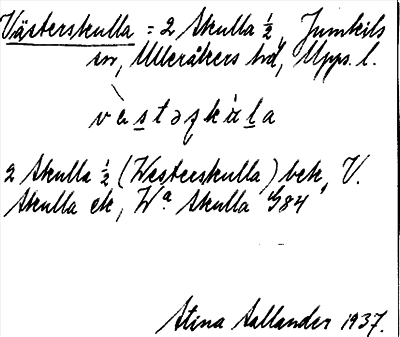 Västerskulla = 2 Skulla ½, Jumkils
sn, Ulleråkers hd, Upps. l.
v ε s t ə ʂ k ù l a
2 Skulla ½ (Westerskulla) bek, V.
Skulla ek, Wa Skulla G84
Stina Sallander 1937.